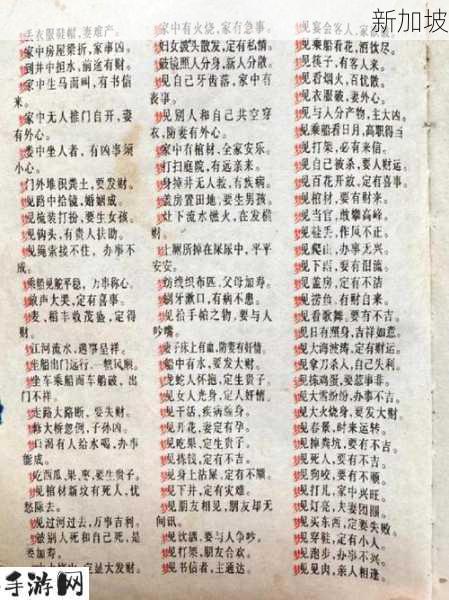 新加坡
丢衣服鞋帽，妻难产。
家中房屋梁折，家事凶。
到井中担水，前途有财。
家中生马面叫，有书信
来。
家中无人推门自开，妻
有外心。
娄中坐人者，有凶事须
小心。
门外堆积粪土，要发财。
见路中拾镜，婚姻成。
见梳装打扮，要生女孩。
见钩头，有贵人扶助。
见绳索接不住，办事不
成。
乘船见舵平稳，万事称心。
放声大哭，定有喜事。
麦、稻丰收茂盛，定得
财。
江河流水，遇事呈祥。
坐船出门远行，一帆风顺。
坐车乘船而车船破，出
门不祥。
走路大路断，要失财。
修大桥忽倒，子孙凶。
口渴有人给水喝，办事
能成。
吃西瓜、果、枣，要生贵子。
见棺材新坟有死人，忧
愁除去。
见过河过去，万事吉利。
被别人死和自己死，是
要加寿。
家中有火烧，家有急事。
妇女披头散发，定有私情。
破镜照人分身，新人分散。
见自己牙齿落，家中有
丧事。
见别人和自己共空穿
衣，防妻有外心。
家中有棺材，全家安乐。
打扫庭院，有远亲来。
身掉井无人救，有疾病。
盖房置田地，要生男孩。
灶下流水燃火，在发横
财。
上厕所掉在屎尿中，平平
安安。
纺线织布匹，父母加寿。
刷牙漱口，有病不患。
见拾手帕之物，要与人
吵嘴。
妻子床上有血，防妻有奸情。
船中有水，要发大财。
龙蛇人怀抱，定生贵子。
见女人光身，定人奸情。
见干活，疾病缠身。
见月花，妻定有孕。
见吃果，定生贵子。
见拣钱，定有不吉。
见身上沾屎，定有不顺。
见下井，定有灾难。
见朋友相见，朋友却无
间讯。
见饮酒，要与人争吵。
见打架，朋友合欢。
见书信者，主通达。
见宴会客人，家
见乘船看花，酒饮尽。
见筷子，有客人来。
见看烟火，百忧散。
见衣服破，妻外心。
见与人分产物，主大凶。
见乘船看日月，高职得当
见打架，必有来信。
见自己被杀，要人财运。
见百花开放，定有喜事。
见棺材，要有财来。
见当官，敢攀高峰。
见驻丢，作风不正。
见爬山，办事无兴。
见下雨，要有泪流。
见盖房，定有不洁
见捞鱼，有财自来。
见看歌舞，要有不吉。
见日有照身，吉祥如意。
见大海波涛，定有财运。
见拿刀杀人，自己失利。
见拣鸡蛋，要惹事非。
见大雪纷纷，办事不吉
见大火烧身，要发大财。
见春景，时来运转。
见掉粪坑，要有不吉。
见死人，要有不吉。
见狗咬，要有不顺。
见打儿，家中兴旺。
见灯亮，夫妻团圆。
见买东西，定要失败。
见穿鞋，定有小人。
见跑步，办事不兴。
见见肉，亲人相逢。
手游网